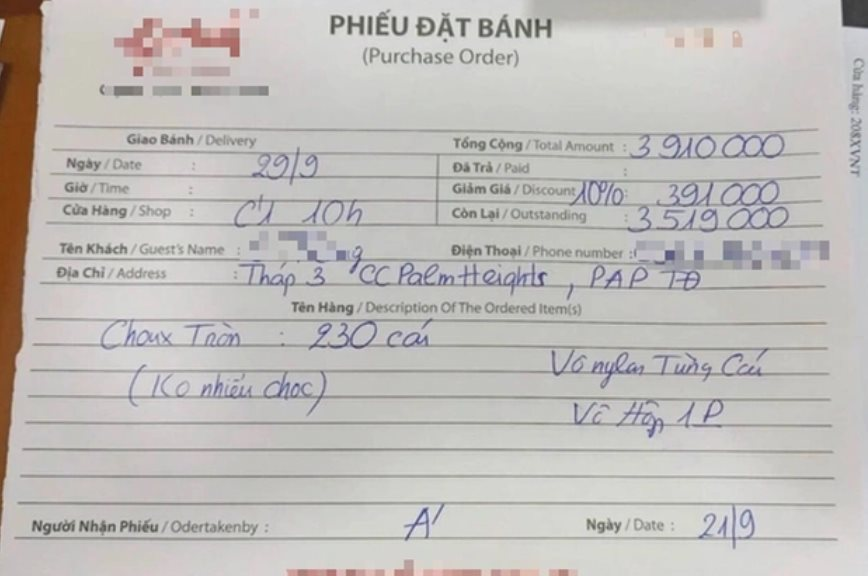 PHIẾU ĐẶT BÁNH
(Purchase Order)
Giao Bánh / Delivery
Ngày / Date : 29/9
Giờ / Time :
Cửa Hàng / Shop : C1 10h
Tổng Cộng / Total Amount : 3 910 000
Đã Trả / Paid :
Giảm Giá / Discount 10% : 391 000
Còn Lại / Outstanding : 3 519 000
Tên Khách / Guest's Name :
Điện Thoại / Phone number :
Địa Chỉ / Address : Tháp 3 CC Palm Heights, PAP TĐ
Tên Hàng / Description Of The Ordered Item(s)
Choux Tròn : 230 cái
(Ko nhiều choc)
Vô nylan Từng Cái
Vô Hộp 1P
Người Nhận Phiếu / Odertakenby : A'
Ngày / Date : 21/9
Cửa hàng: 208XVNT